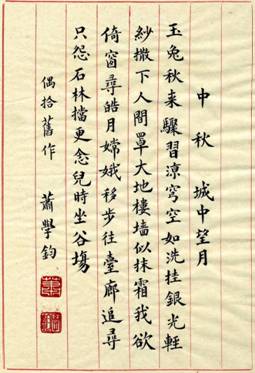 中秋 城中望月
玉兔秋来驟習涼穹空如洗挂銀光輕
紗撒下人間罩大地樓墻似抹霜我欲
倚窗尋皓月嫦娥移步往臺廊追尋
只怨石林擋更念兒時坐谷塲
偶拾舊作 蕭學鈞